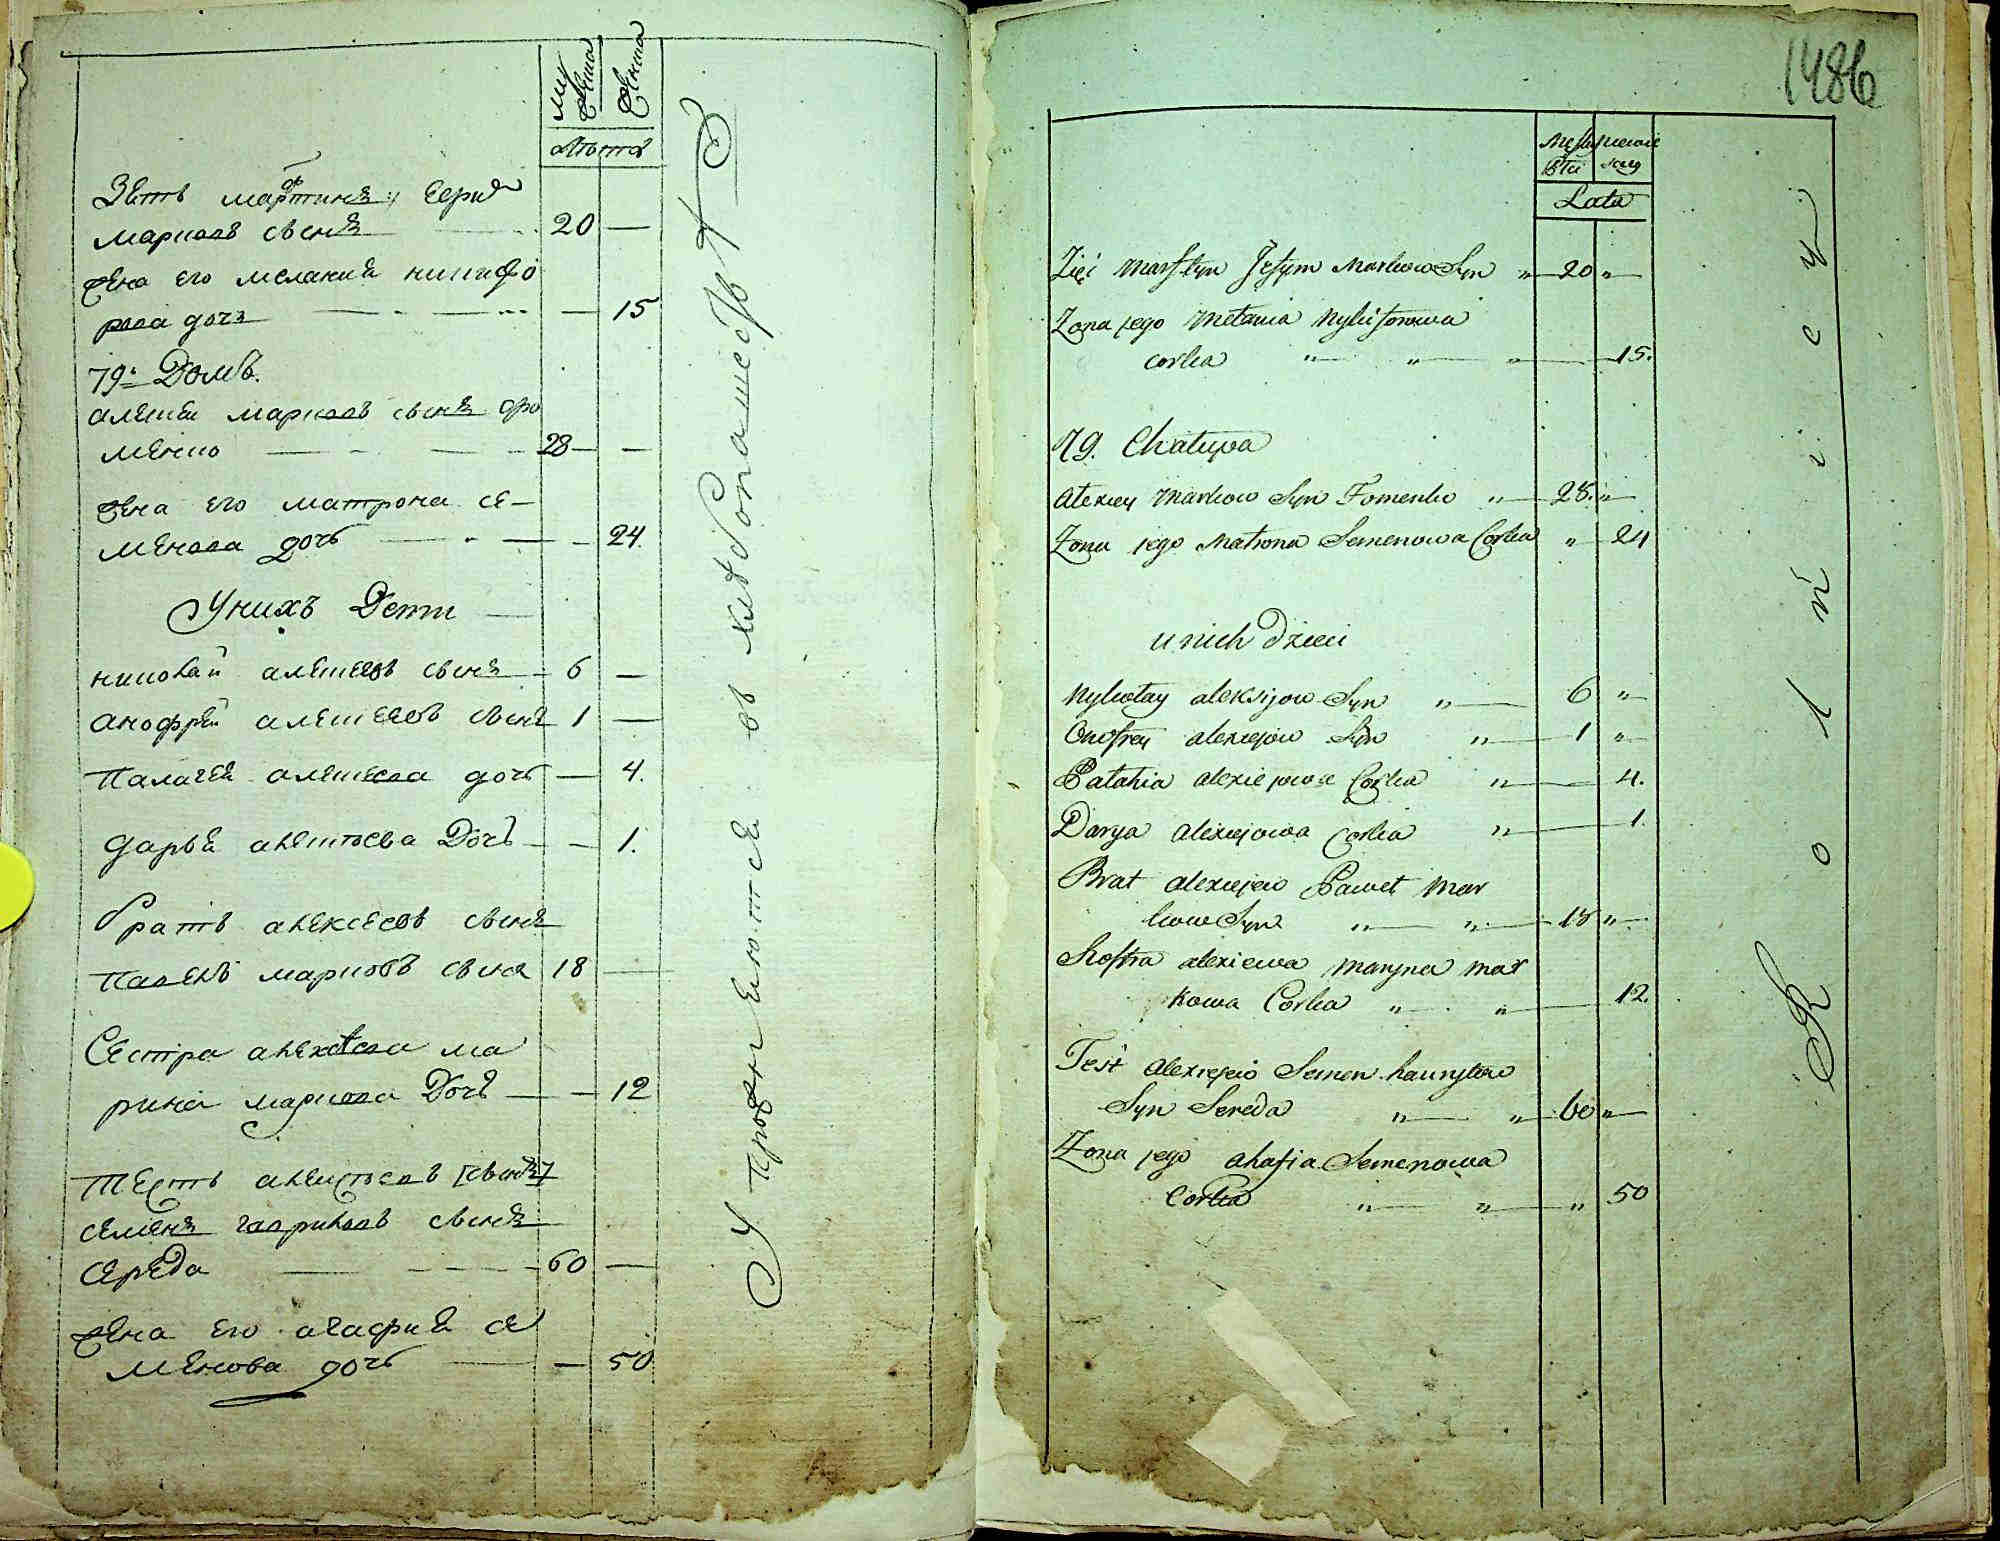 му
жеска
женска
Лѣта
Зеть мартина
марковъ сынъ 20 —
жена его мелания никифо
рова дочъ — 15
79: Домъ.
алексеи марковъ сынъ фо
менко 28 —
жена его матрона се-
менова дочь — 24.
Унихъ Дети
николаи алексеевъ сынъ 6 —
анофреи алексеевъ сынъ 1 —
палагея алексеева дочь — 4.
дарья алексѣева Дочь — 1.
братъ алексеевъ сынъ
павелъ марковъ сынъ 18 —
Сестра алексѣева ма
рина маркова Дочь — 12
тесть алексѣевъ
семенъ гавриловъ сынъ
середа 60 —
жена его агафия се
менова дочь — 50
Упражняются въ хлѣбопашествѣ
1486
Męska
Lata
Zięć Martyn Jefym Markow Syn " 20 "
Zona jego Mełania Nykiforowa
corka " " " 15.
79. Chałupa
Alexiey Markow Syn Fomenko " 28. "
Zona jego Matrona Semenowa Corka " 24
u nich Dzieci
Nykołay Aleksijow Syn " 6 "
Onofrey Alexiejow Syn " 1 "
Pałahia Alexiejowa Corka " 4.
Darya Alexiejowa Corka " 1.
Brat Alexiejow Paweł Mar
kow Syn " " 18 "
Siostra Alexiewa Maryna Mar
kowa Corka " " 12.
Teść Alexiejow Semen hawryłow
Syn Sereda " " 60 "
Zona jego Ahafia Semenowa
Corka " " " 50
Rolnicy